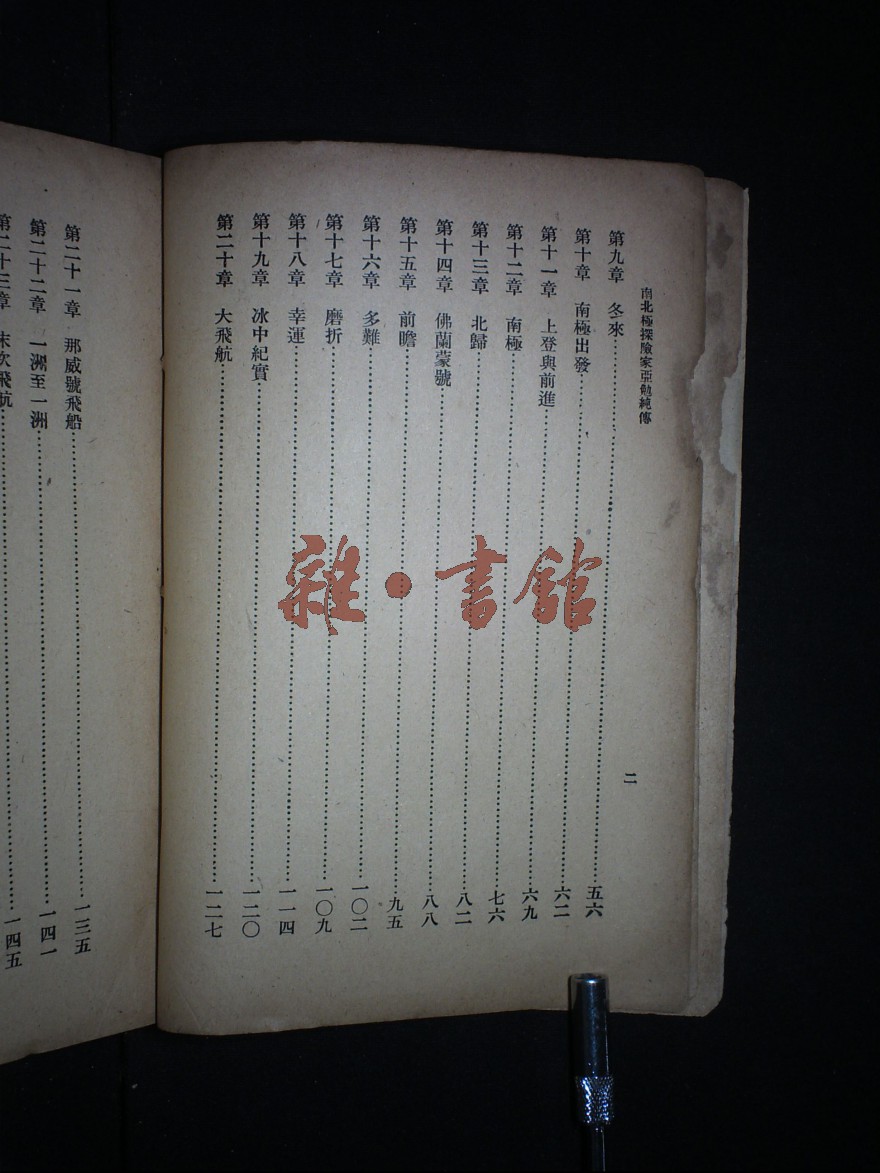 南北極探險家亞勉純傳
二
第九章　冬來……五六
第十章　南極出發……六二
第十一章　上登與前進……六九
第十二章　南極……七六
第十三章　北歸……八二
第十四章　佛蘭蒙號……八八
第十五章　前瞻……九五
第十六章　多難……一〇二
第十七章　磨折……一〇九
第十八章　幸運……一一四
第十九章　冰中紀實……一二〇
第二十章　大飛航……一二七
第二十一章　那威號飛船……一三五
第二十二章　一洲至一洲……一四一
第二十三章　末次飛航……一四五
雜·書館